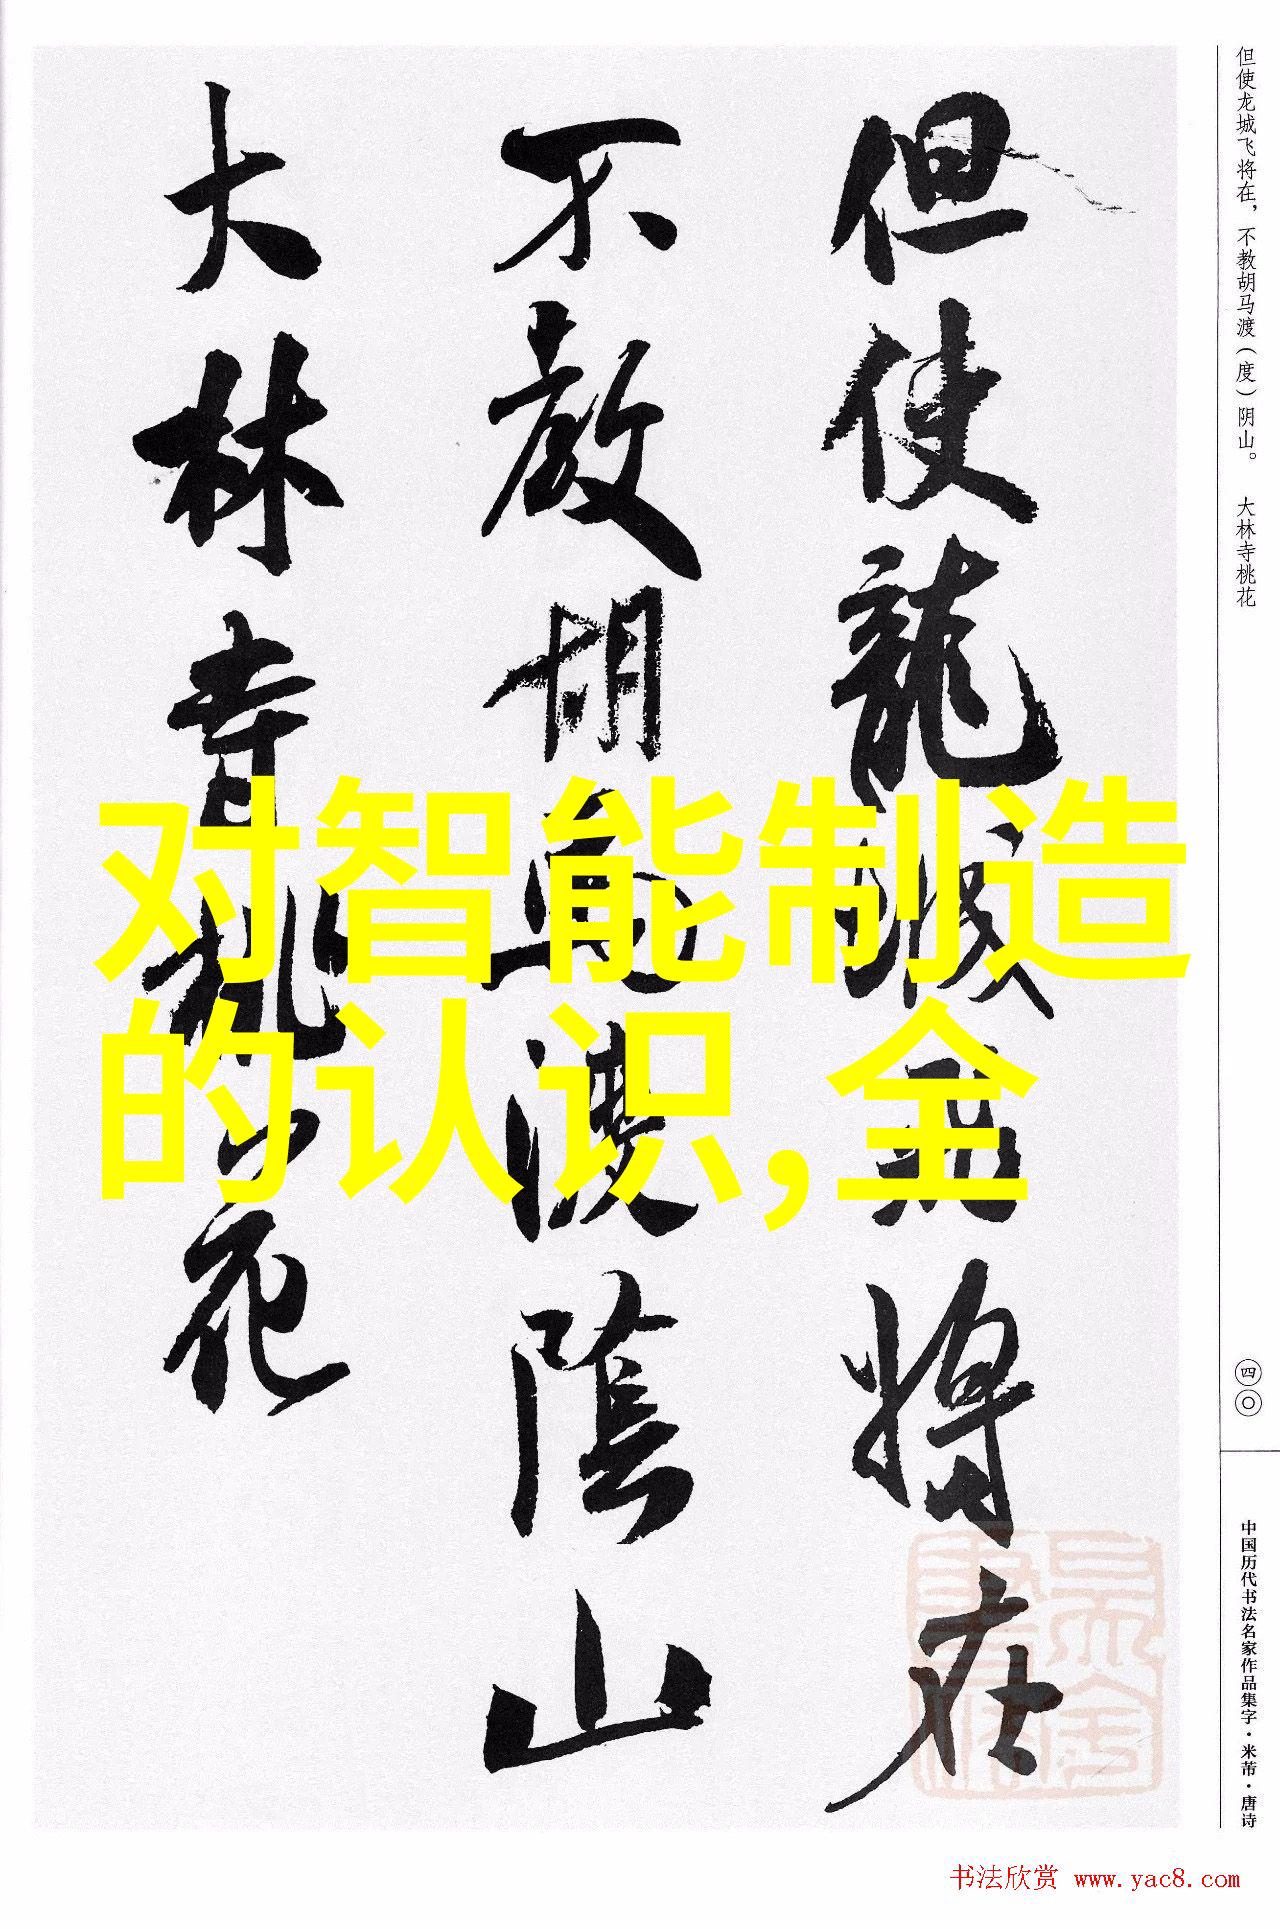 但使龍城飛將在
不教胡馬渡陰山
大林寺桃花
但使龙城飞将在，不教胡马渡（度）阴山。 大林寺桃花
四〇
中国历代书法名家作品集字·米芾·唐诗
对智能制造
的认识,全
书法欣赏 www.yac8.com